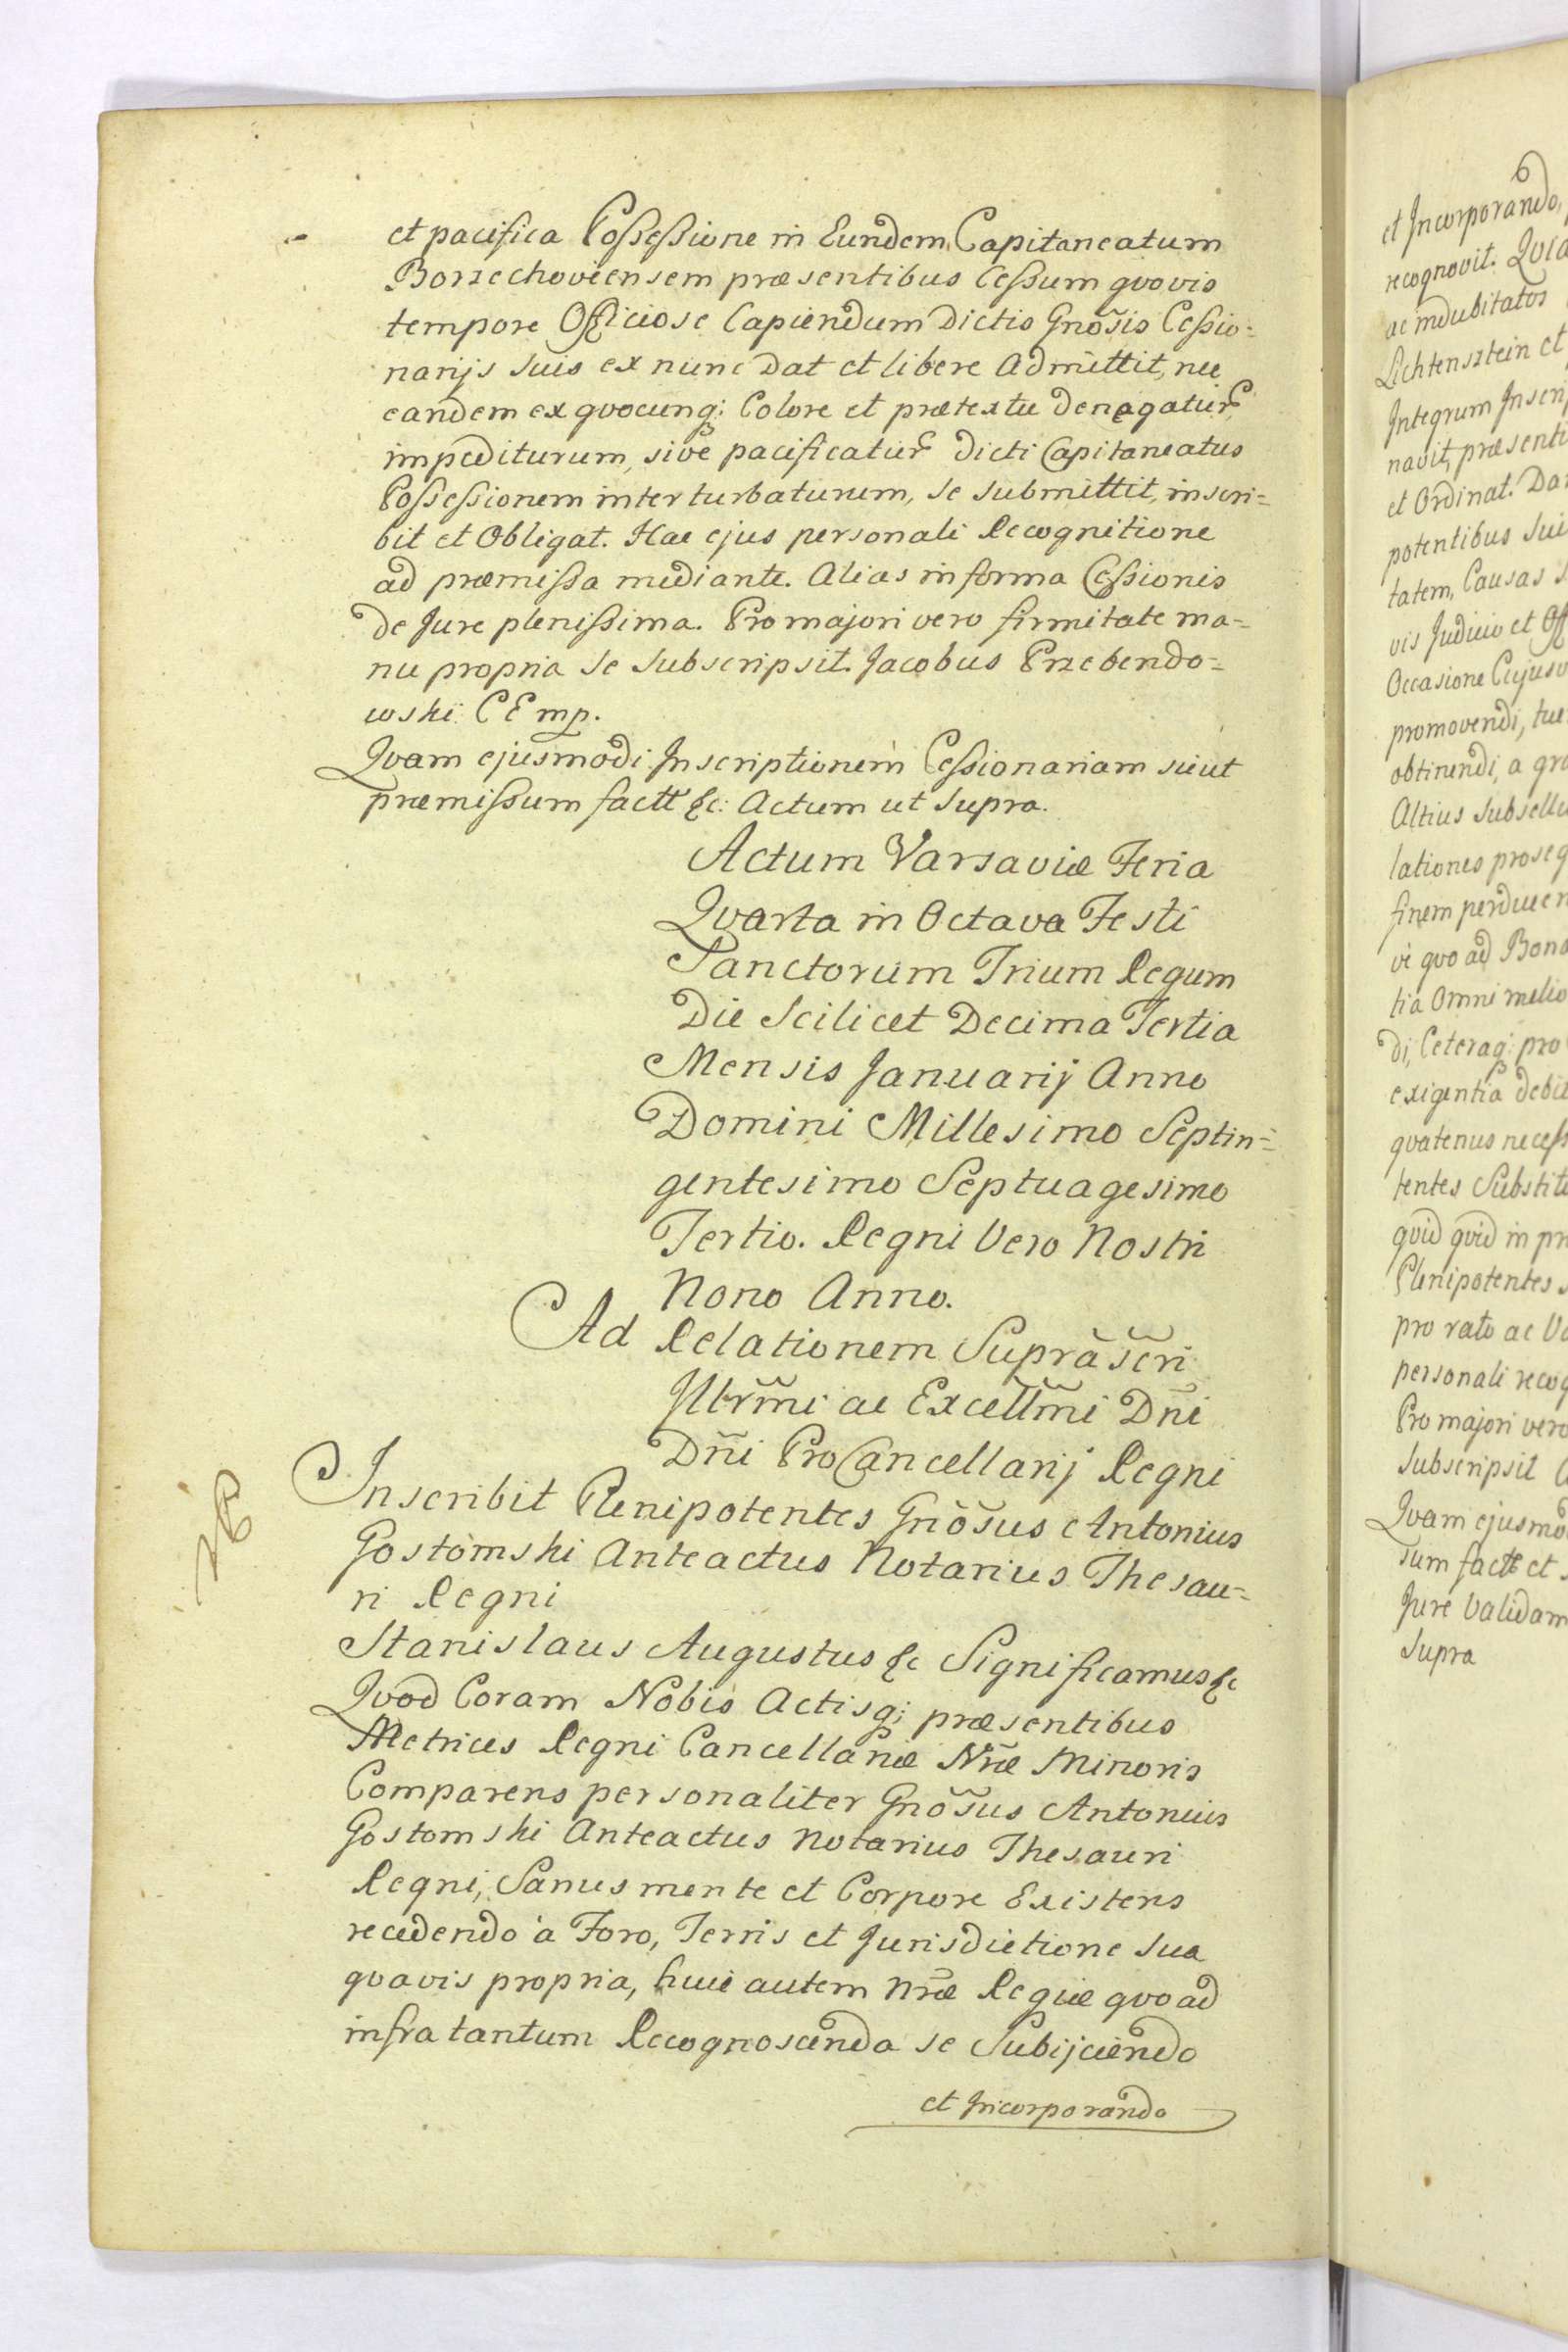 et pacifica Possessione in Eundem Capitaneatum
Borzechoviensem præsentibus Cessum qvovis
tempore Officiose Capiendum Dictis Gnõsis Cessio=
narijs suis ex nunc Dat et libere Admittit, nec
eandem ex qvocunq; Colore et prætextu denegatur
impediturum, sive pacificatur dicti Capitaneatus
Possessionem interturbaturum, se submittit, inscri=
bit et Obligat. Hac ejus personali Recognitione
ad præmissa mediante. Alias in forma Cessionis
de Jure plenissima. Pro majori vero firmitate ma=
nu propria se subscripsit. Jacobus Przebendo=
wski CE mp.
Qvam ejusmodi Inscriptionem Cessionariam sicut
præmissum factt &c: Actum ut supra.
Actum Varsaviæ Feria
Qvarta in Octava Festi
Sanctorum Trium Regum
Die Scilicet Decima Tertia
Mensis Januarij Anno
Domini Millesimo Septin=
gentesimo Septuagesimo
Tertio. Regni Vero Nostri
Nono Anno.
Ad Relationem Suprãscri
Illrm̃i ac Excellm̃i Dñi
Dñi ProCancellarij Regni
NB
Inscribit Plenipotentes Gnõsus Antonius
Gostomski Anteactus Notarius Thesau=
ri Regni
Stanislaus Augustus &c Significamus &c
Qvod Coram Nobis Actisq; præsentibus
Metrices Regni Cancellariæ Nr̃æ Minoris
Comparens personaliter Gnõsus Antonius
Gostomski Anteactus Notarius Thesauri
Regni, Sanus mente et Corpore Existens
recedendo à Foro, Terris et Jurisdictione sua
qvavis propria, huic autem Nr̃æ Regiæ qvoad
infra tantum Recognoscenda se Subijciendo
et Incorporando
6
et Incorporando,
recognovit. Qvia
ac indubitatos
Lichtensztein et
Integrum Inscri
navit, præsenti
et Ordinat. Da
potentibus sui
tatem, Causas
vis Judicio et Off
Occasione Cujus
promovendi, tue
obtinendi, a gra
Altius subselli
lationes proseq
finem perducen
vi qvo ad Bona
tia Omni melio
di, Ceteraq; pro
exigentia debit
qvatenus necess
tentes Substit
qvid qvid in pr
Plenipotentes
pro rato ac
personali recog
Pro majori vero
subscripsit
Qvam ejusmo
sum factt et
Jure Validam
supra